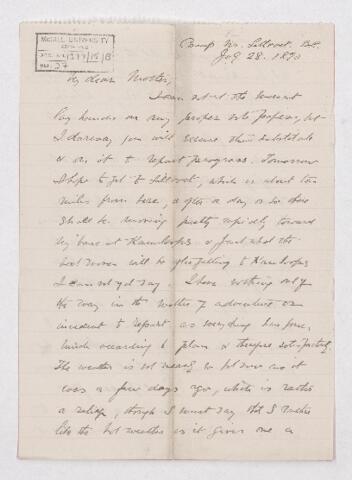 McGILL UNIVERSITY
Camp Nr. Lillooet, B.C.
July 28. 1890
My dear Mother,
I can not at the moment
lay hands on any proper note paper, but
I daresay you will excuse this substitute
& on it to report progress. Tomorrow
I hope to get to Lillooet, which is about ten
miles from here, & after a day or so there
shall be moving pretty rapidly toward
my base at Kamloops, & just what the
next move will be after getting to Kamloops
I can not yet say. I have nothing out of
the way in the matter of adventure or
incident to report as everything has gone
much according to plan & therefore satisfactorily.
The weather is not nearly so hot now as it
was a few days ago, which is rather
a relief, though I must say that I rather
like the hot weather as it gives one a